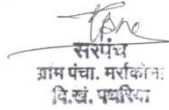 सरपंच
ग्राम पंचा. मर्राकोना
वि.खं. पथरिया